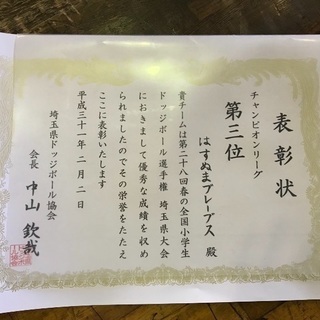 表彰状
チャンピオンリーグ
第三位
はすぬまブレーブス 殿
貴チームは第二十八回春の全国小学生
ドッジボール選手権 埼玉県大会
におきまして優秀な成績を収め
られましたのでその栄誉をたたえ
ここに表彰いたします
平成三十一年二月二日
埼玉県ドッジボール協会
会長 中山 欽哉